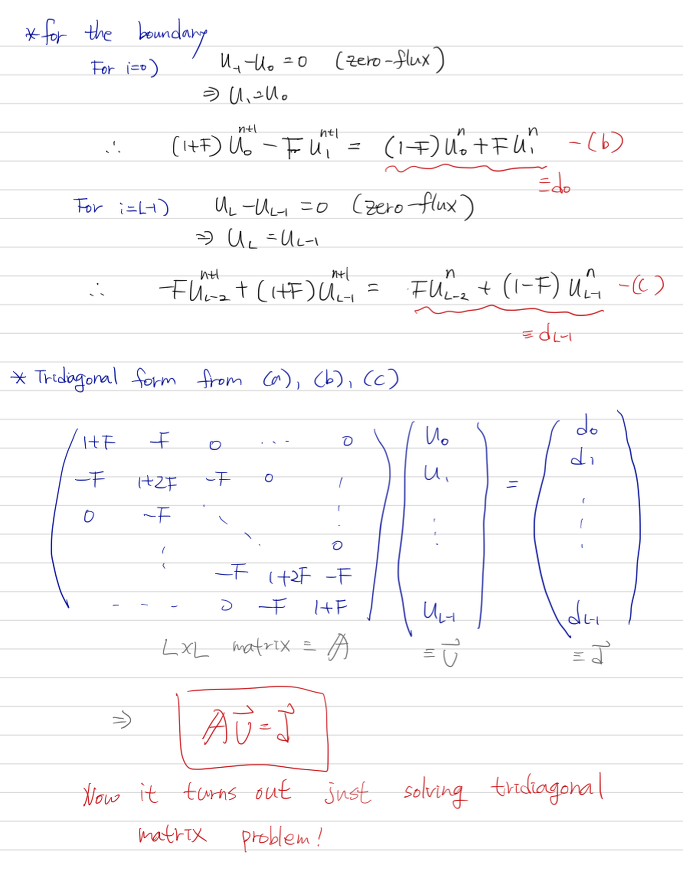 * for the boundary
For i=0) U₋₁-U₀ = 0 (zero-flux)
⇒ U₁=U₀
∴ (1+F) U₀ⁿ⁺¹ - F U₁ⁿ⁺¹ = (1-F) U₀ⁿ + F U₁ⁿ -(b)
≡d₀
For i=L-1) U_L - U_{L-1} = 0 (zero-flux)
⇒ U_L = U_{L-1}
∴ -F U_{L-2}ⁿ⁺¹ + (1+F) U_{L-1}ⁿ⁺¹ = F U_{L-2}ⁿ + (1-F) U_{L-1}ⁿ -(c)
≡ d_{L-1}
* Tridiagonal form from (a), (b), (c)
1+F -F 0 ... 0 U₀ d₀
-F 1+2F -F 0 U₁ = d₁
0 -F
0
-F 1+2F -F
0 -F 1+F U_{L-1} d_{L-1}
L×L matrix ≡ 𝔸 ≡ U⃗ ≡ d⃗
⇒ 𝔸U⃗ = d⃗
Now it turns out just solving tridiagonal
matrix problem!